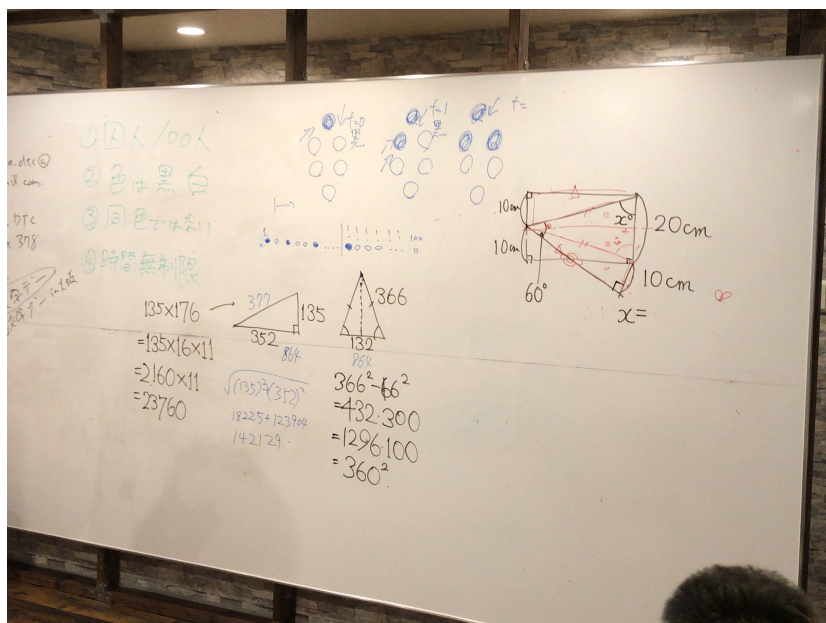 a.dtc@
il.com.
DTC
378
① 囚人 100人
② 色は黒白
③ 同色ではない
④ 時間無制限
t=0
黒
t=1
黒
t=
1
100
135×176
=135×16×11
=2160×11
=23760
377
135
352
864
√(135)²+(352)²
18225+123904
142129.
366
132
864
366²-66²
=432·300
=1296·100
=360²
10cm
10cm
60°
x°
20cm
10cm
x=